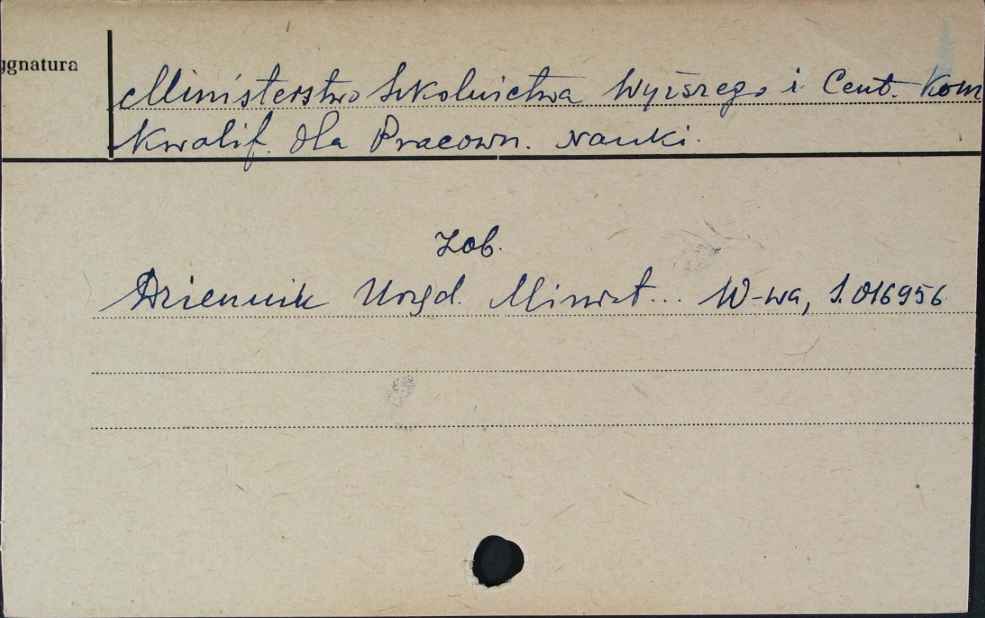 ygnatura
Ministerstwo Szkolnictwa Wyższego i Cent. Kom
Kwalif. dla Pracown. Nauki.
Zob.
Dziennik Urzęd. Minist... W-wa, S.016956